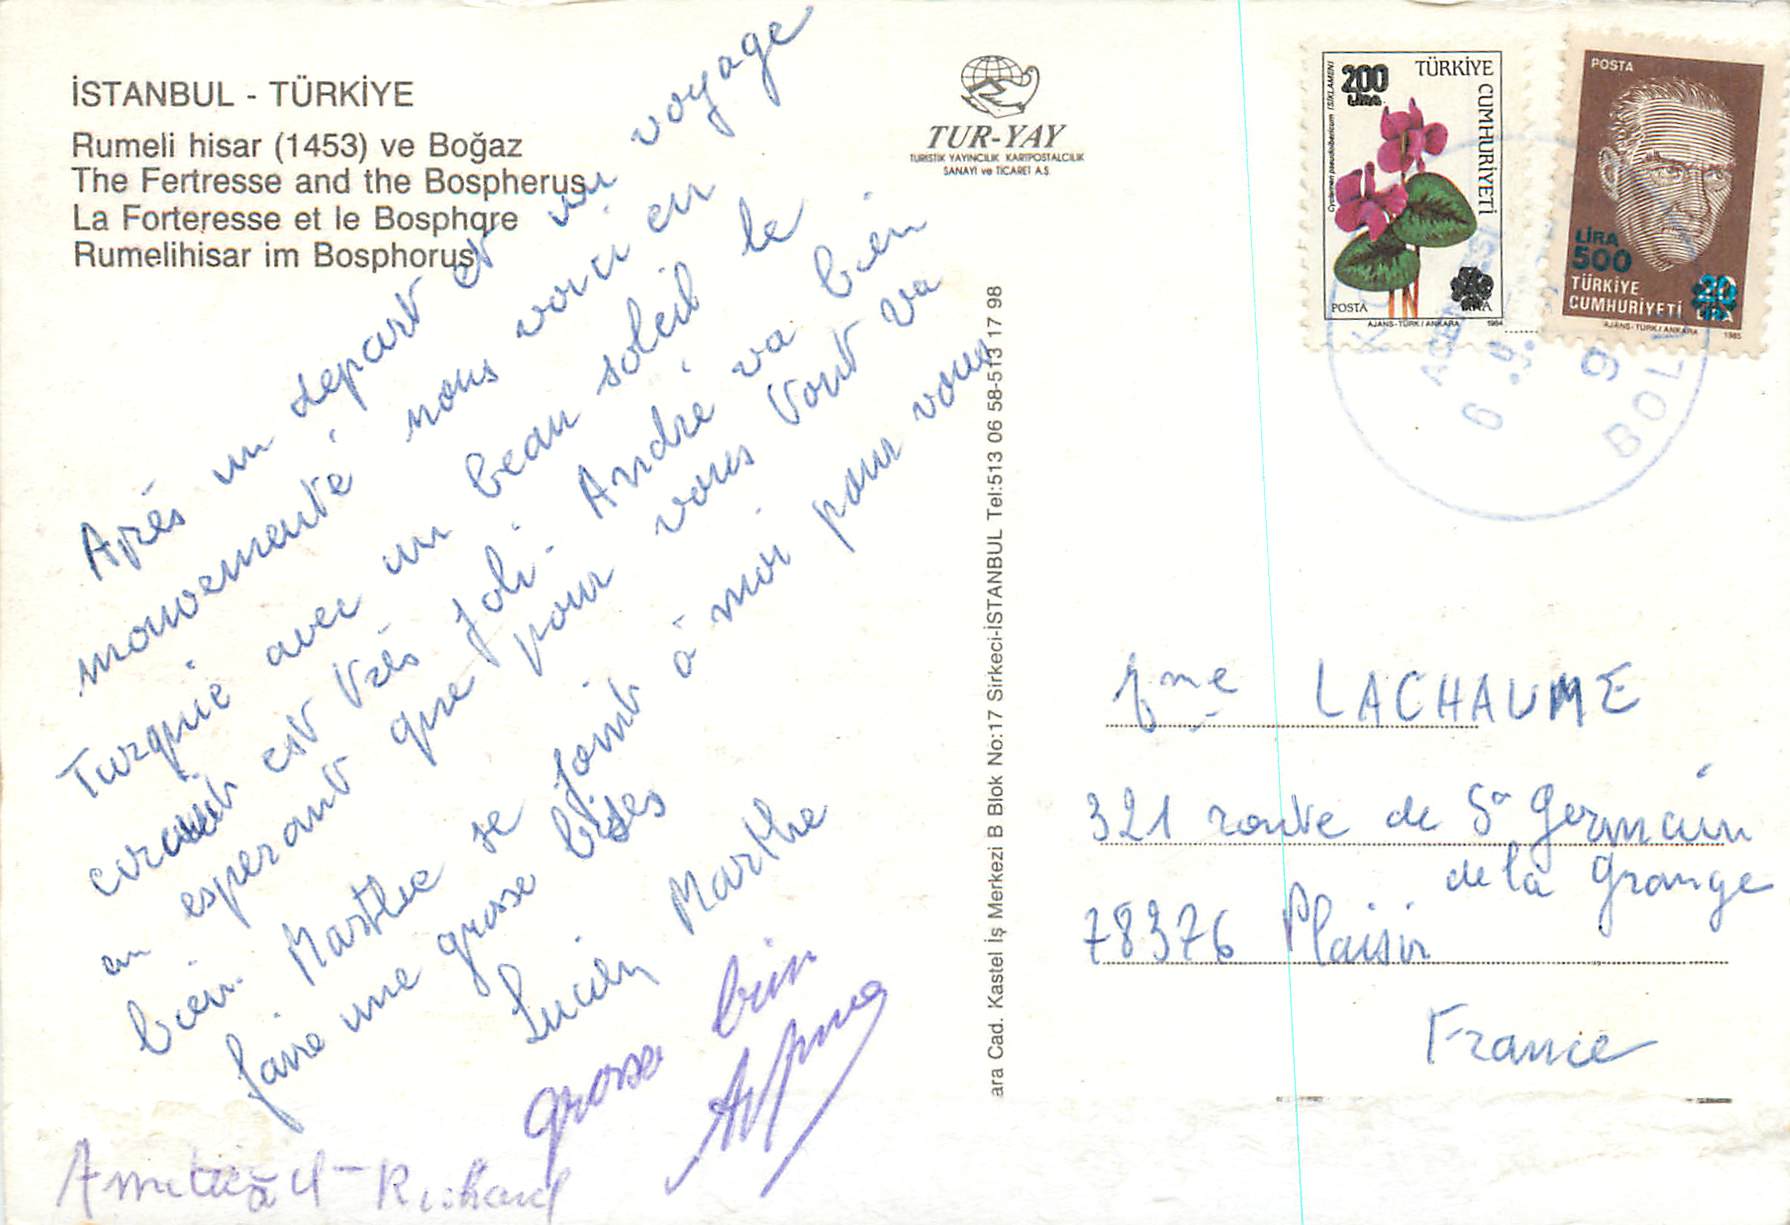 İSTANBUL - TÜRKİYE
Rumeli hisar (1453) ve Boğaz
The Fertresse and the Bospherus
La Forteresse et le Bosphore
Rumelihisar im Bosphorus
Après un depart et un voyage
mouvementé nous voici en
Turquie avec un beau soleil le
circuit est très joli. André va bien
en esperant que pour vous tout va
bien. Marthe se joint à moi pour vous
faire une grosse bises
Lucien Marthe
grosse
Richard
TUR-YAY
TURISTIK YAYINCILIK KARTPOSTALCILIK
SANAYİ ve TİCARET A.Ş.
ara Cad. Kastel İş Merkezi B Blok No:17 Sirkeci-İSTANBUL Tel:513 06 58-513 17 98
200
LİRA
TÜRKİYE
CUMHURİYETİ
Cyclamen pseudibericum (SIKLAMEN)
POSTA
LİRA
AJANS-TÜRK / ANKARA 1984
POSTA
LİRA
500
20
TÜRKİYE
CUMHURİYETİ LİRA
AJANS-TÜRK / ANKARA 1985
BOL
Mme LACHAUME
321 route de St Germain
de la Grange
78376 Plaisir
France